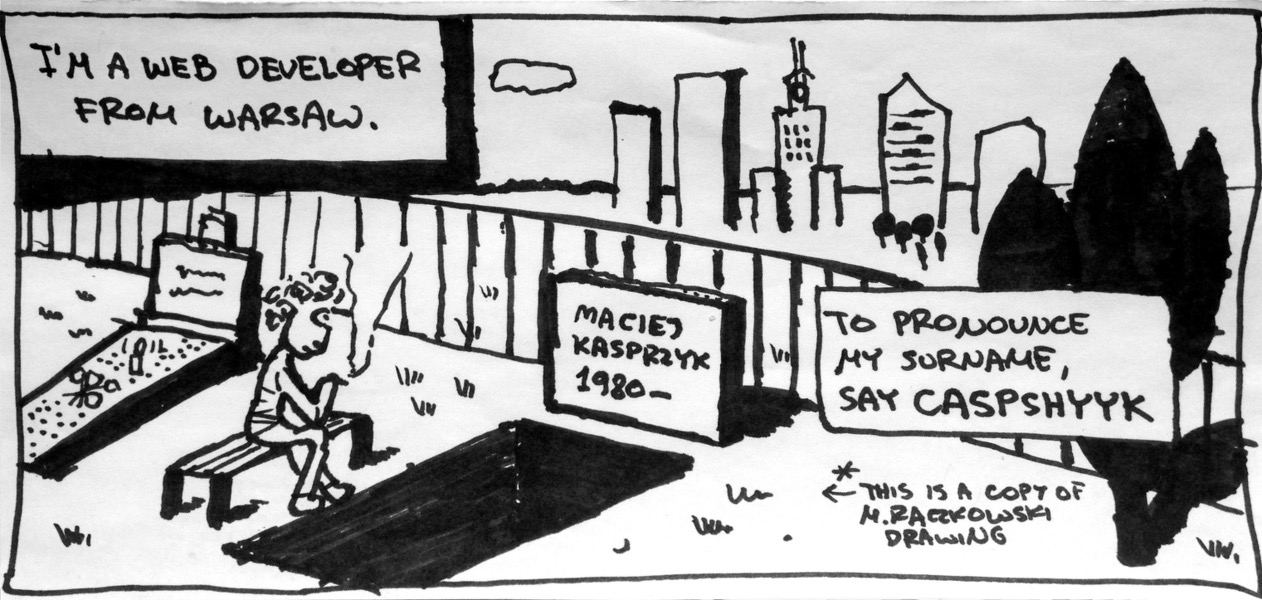 I'M A WEB DEVELOPER
FROM WARSAW.
MACIEJ
KASPRZYK
1980-
TO PRONOUNCE
MY SURNAME,
SAY CASPSHYYK
*
← THIS IS A COPY OF
M. RACZKOWSKI
DRAWING